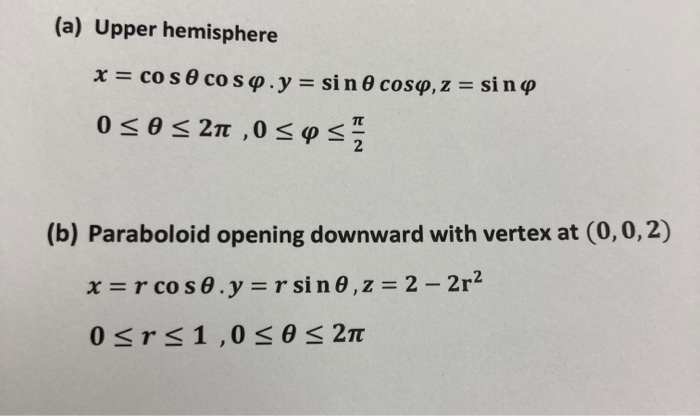 (a) Upper hemisphere
x = cos θ cos φ . y = sin θ cosφ, z = sin φ
0 ≤ θ ≤ 2π , 0 ≤ φ ≤ π/2
(b) Paraboloid opening downward with vertex at (0, 0, 2)
x = r cos θ . y = r sin θ , z = 2 − 2r²
0 ≤ r ≤ 1 , 0 ≤ θ ≤ 2π